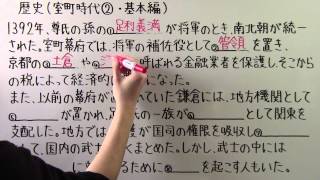 歴史(室町時代②・基本編)
1392年、尊氏の孫の①足利義満が将軍のとき、南北朝が統一
された。室町幕府では、将軍の補佐役として②管領を置き、
京都の③土倉や④ 呼ばれる金融業者を保護し、そこから
の税によって経済的 になった。
また、以前の幕府が いた鎌倉には、地方機関として
が置かれ、 氏の一族が として関東を
支配した。地方では が国司の権限を吸収し
して、国内の武士 まとめた。しかし、武士の中には
に るために を起こす人もいた。